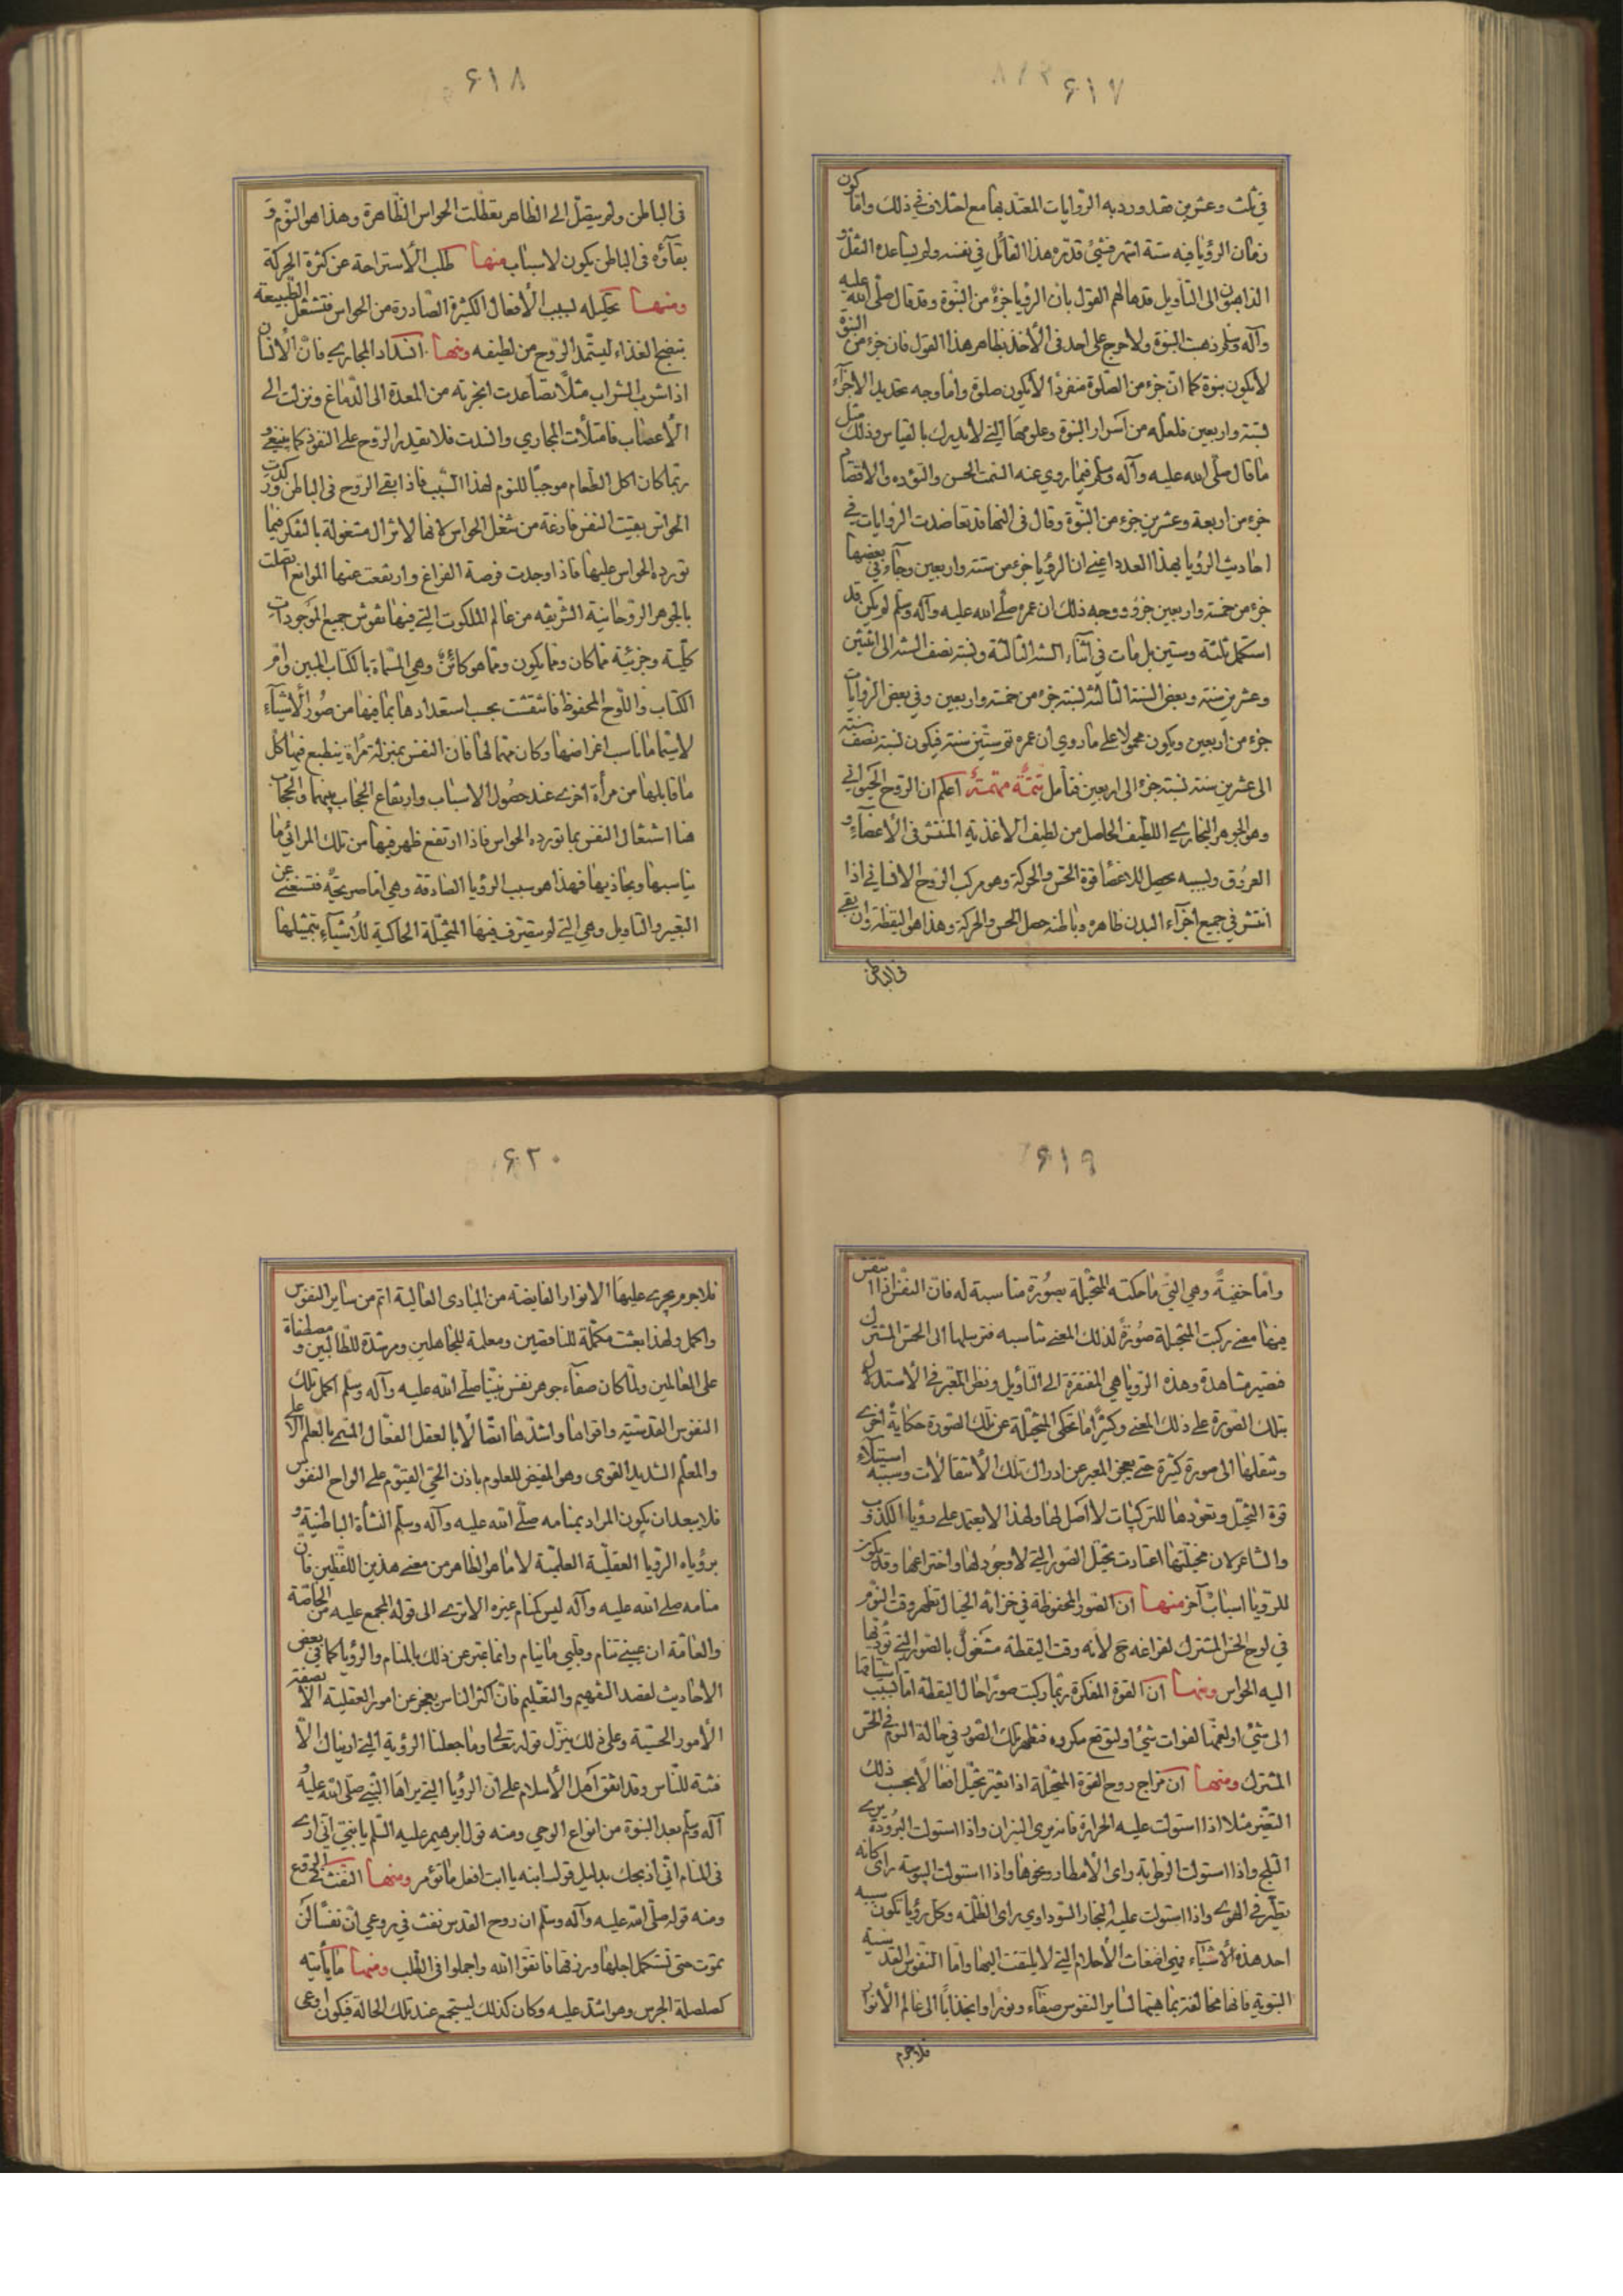 ٦١٧
في ثلث وعشرين فقد ورد به الروايات المعتد بها مع اختلاف في ذلك واما كون
زمان الرؤيا فيه ستة اشهر فشئ قدره هذا القائل في نفسه ولم يساعده النقل و
الذاهبون الى التأويل قد هالهم القول بان الرؤيا جزء من النبوة وقد قال صلى الله عليه
وآله وسلم ذهبت النبوة ولا حرج على احد في الأخذ بظاهر هذا القول فان جزء من النبوة
لا يكون نبوة كما ان جزء من الصلوة منفردا لا يكون صلوة واما وجه تحديد الاجزاء
بستة واربعين فلعله من اسرار النبوة وعلومها التي لا يدرك بالقياس وذلك مثل
ما قال صلى الله عليه وآله وسلم فيما روي عنه السمت الحسن والتؤده والاقتصاد
جزء من اربعة وعشرين جزء من النبوة وقال في النها قد تعاضدت الروايات في
احاديث الرؤيا بهذا العدد اعني ان الرؤيا جزء من ستة واربعين وجاء في بعضها
جزء من خمسة واربعين جزء ووجه ذلك ان عمره صلى الله عليه وآله وسلم لم يكن قد
استكمل ثلثة وستين بل مات في اثناء السنة الثالثة ونسبة نصف السنة الى اثنين
وعشرين سنة وبعض السنة الثالثة نسبة جزء من خمسة واربعين وفي بعض الروايات
جزء من اربعين ويكون محمولا على ما روي ان عمره تم ستين سنة فيكون نسبة نصف سنة
الى عشرين سنة نسبة جزء الى اربعين فتأمل تتمة مهمة اعلم ان الروح الحيواني
وهو الجوهر البخاري اللطيف الحاصل من لطيف الاغذية المنتشر في الأعضاء و
العروق وبسببه يحصل للاعضا قوة الحس والحركة وهو مركب الروح الانساني اذا
انتشر في جميع اجزاء البدن ظاهره وباطنه حصل الحس والحركة وهذا هو اليقظة وان بقي
في الباطن
٦١٨
في الباطن ولم ينتقل الى الظاهر تعطلت الحواس الظاهرة وهذا هو النوم و
بقاؤه في الباطن يكون لاسباب منها طلب الأستراحة عن كثرة الحركة
ومنها تحليله لسبب الأفعال الكثيرة الصادرة من الحواس فتشتغل الطبيعة
بنضج الغذاء ليستمد الروح من لطيفه ومنها انسداد المجاري فان الأنسان
اذا شرب الشراب مثلا تصاعدت ابخرته من المعدة الى الدماغ ونزلت الى
الأعصاب فامتلأت المجاري وانسدت فلا يقدر الروح على النفوذ كما ينبغي و
ربما كان اكل الطعام موجبا للنوم لهذا السبب فاذا بقي الروح في الباطن وركدت
الحواس بقيت النفس فارغة من شغل الحواس لانها لا تزال مشغولة بالتفكر فيما
تورده الحواس عليها فاذا وجدت فرصة الفراغ وارتفعت عنها الموانع اتصلت
بالجوهر الروحانية الشريفه من عالم الملكوت التي فيها نقوش جميع الموجودات
كلية وجزئية مما كان ومما يكون ومما هو كائن وهي المسماة بالكتاب المبين وام
الكتاب واللوح المحفوظ فانتقشت بحسب استعدادها بما فيها من صور الأشياء
لا سيما ما ناسب اغراضها وكان مهما لها فان النفس بمنزلة مرأة ينطبع فيها كل
ما قابلها من مرأة اخرى عند حصول الاسباب وارتفاع الحجاب بينهما والحجاب
هنا اشتغال النفس بما تورده الحواس فاذا ارتفع ظهر فيها من تلك المرائي ما
يناسبها ويحاذيها فهذا هو سبب الرؤيا الصادقة وهي اما صريحة فتستغني عن
التعبير والتاويل وهي التي لم يتصرف فيها المتخيلة الحاكية للأشياء بتمثيلها
٦١٩
واما خفية وهي التي ما حكته المتخيلة بصورة مناسبة له فان النفس اذا انتقش
فيها معنى ركبت المتخيلة صورة لذلك المعنى تناسبه فترسلها الى الحس المشترك
فتصير مشاهدة وهذه الرؤيا هي المفتقرة الى التأويل ونظر المعبر في الأستدلال
بتلك الصورة على ذلك المعنى وكثيرا ما تحكى المتخيلة عن تلك الصورة حكاية اخرى
وتنقلها الى صورة كثيرة حتى يعجز المعبر عن ادراك تلك الأنتقالات وسببه استيلاء
قوة التخيل وتعودها للتركيبات لا اصل لها ولهذا لا يعتمد على رؤيا الكذوب
والشاعر لان مخيلتها اعتادت تخيل الصور التي لا وجود لها واختراعها وقد يكون
للرؤيا اسباب آخر منها ان الصور المحفوظة في خزانة الخيال تظهر وقت النوم
في لوح الحس المشترك لفراغه ح لأنه وقت اليقظة مشغول بالصور التي تؤديها
اليه الحواس ومنها ان القوة المفكرة ربما ركبت صورا حال اليقظة اما لسبب اشتياقها
الى شئ او لغمها لفوات شئ او لتوقع مكروه فتظهر تلك الصور في حالة النوم في الحس
المشترك ومنها ان مزاج روح القوة المتخيلة اذا تغير تخيل افعالا بحسب ذلك
التغير مثلا اذا استولت عليه الحرارة فانه يرى النيران واذا استولت البرودة يرى
الثلج واذا استولت الرطوبة راى الأمطار ونحوها واذا استولت اليبوسة راى كانه
يطير في الهوى واذا استولت عليه البخار السوداوي راى الظلمة وكل رؤيا تكون سببه
احد هذه الأشياء فهي اضغاث الأحلام التي لا يلتفت اليها واما النفوس القدسية
النبوية فانها مخالفة بماهيتها لساير النفوس صفاء ونورا وانجذابا الى عالم الأنوار
فلا جرم
٦٢٠
فلا جرم يجري عليها الانوار الفايضة من المبادى العالية اتم من ساير النفوس
واكمل ولهذا بعثت مكملة للناقصين ومعلمة للجاهلين ومرشدة للطالبين ومصطفاة
على العالمين ولما كان صفاء جوهر نفس نبينا صلى الله عليه وآله وسلم اكمل تلك
النفوس القدسية واقواها واشدها اتصالا بالعقل الفعال المسمى بالعلم الأعلى
والمعلم الشديد القوى وهو المفيض للعلوم باذن الحي القيوم على الواح النفوس
فلا يبعد ان يكون المراد بمنامه صلى الله عليه وآله وسلم النشأة الباطنية و
برؤياه الرؤيا العقلية العلمية لا ما هو الظاهر من معنى هذين اللفظين فان
منامه صلى الله عليه وآله ليس كمنام غيره الا ترى الى قوله المجمع عليه من الخاصة
والعامة ان عيني تنام وقلبي ما ينام وانما عبر عن ذلك بالمنام والرؤيا كما في بعض
الاحاديث لقصد التفهيم والتعليم فان اكثر الناس يعجز عن امور العقلية الا بصفة
الأمور الحسية وعلى ذلك ينزل قوله تعالى وما جعلنا الرؤية التي اريناك الا
فتنة للناس وقد اتفق اهل الأسلام على ان الرؤيا التي يراها النبي صلى الله عليه
آله وسلم بعد النبوة من انواع الوحي ومنه قول ابرهيم عليه السلم يا بني اني ارى
في المنام اني اذبحك بدليل قول ابنه يا ابت افعل ما تؤمر ومنها النفث في الروع
ومنه قوله صلى الله عليه وآله وسلم ان روح القدس نفث في روعي ان نفسا لن
تموت حتى تستكمل اجلها ورزقها فاتقوا الله واجملوا في الطلب ومنها ما يأتيه
كصلصلة الجرس وهو اشد عليه وكان كذلك ليستجمع عند تلك الحالة فيكون اوعى